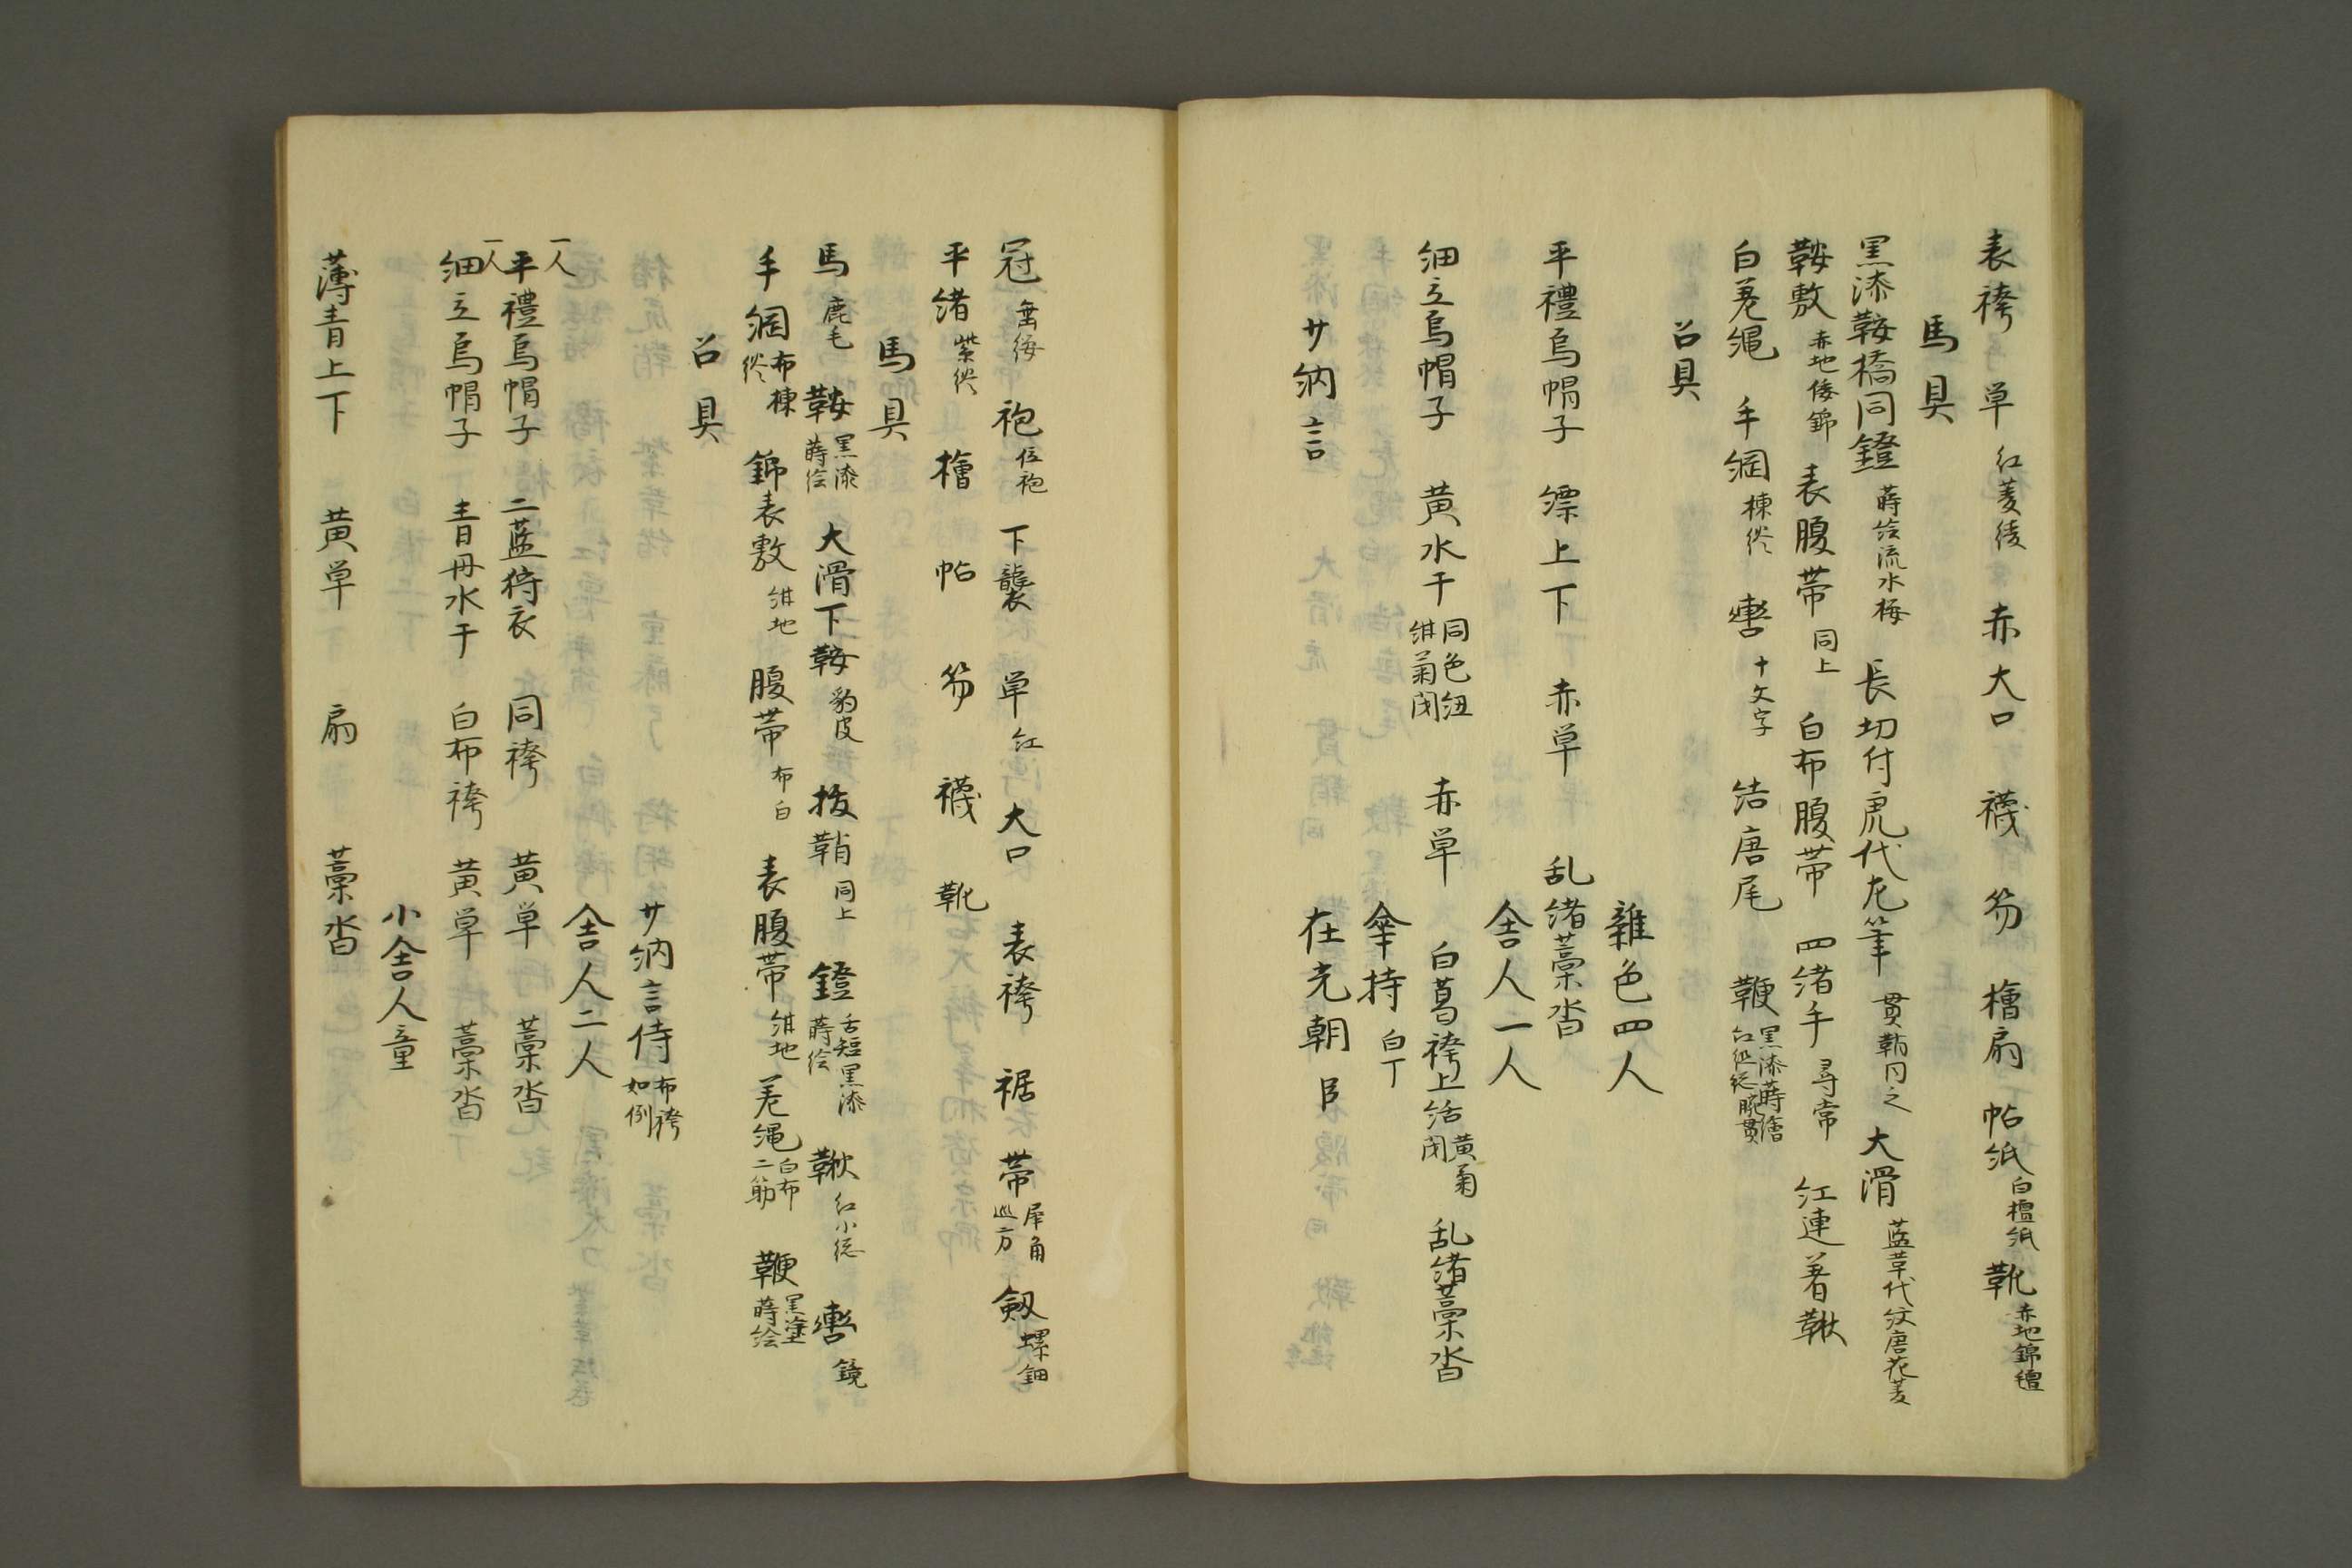 表袴 単 紅菱綾 赤大口 襪 笏 檜扇 帖紙 白檀紙 靴 赤地錦氈
馬具
黒漆鞍橋同鐙 蒔絵流水梅 長切付虎代尨筆 貫鞘同之 大滑 藍革代紋唐花菱
鞍敷 赤地倭錦 表腹帯 同上 白布腹帯 四緒手 尋常 紅連着鞦
白差縄 手綱 楝 轡 十文字 結唐尾 鞭 黒漆蒔繪 腕貫
召具
雑色四人
平禮烏帽子 縹上下 赤単 乱緒藁沓
舎人一人
細立烏帽子 黄水干 同色紐 紺菊閉 赤単 白葛袴上括 黄菊閉 乱緒藁沓
傘持 白丁
少納言 在光朝臣
冠 垂緌 袍 位袍 下襲 単 紅 大口 表袴 裾 帯 犀角巡方 劔 螺鈿
平緒 紫 檜 帖 笏 襪 靴
馬具
馬 鹿毛 鞍 黒漆蒔絵 大滑下鞍 豹皮 抜鞘 同上 鐙 舌短黒漆蒔絵 鞦 紅小総 轡 鏡
手綱 布楝 錦表敷 紺地 腹帯 布白 表腹帯 紺地 差縄 白布二筋 鞭 黒塗蒔絵
召具
少納言侍 布袴如例
舎人二人
一人 平禮烏帽子 二藍狩衣 同袴 黄単 藁沓
一人 細立烏帽子 青丹水干 白布袴 黄単 藁沓
小舎人童
薄青上下 黄単 扇 藁沓